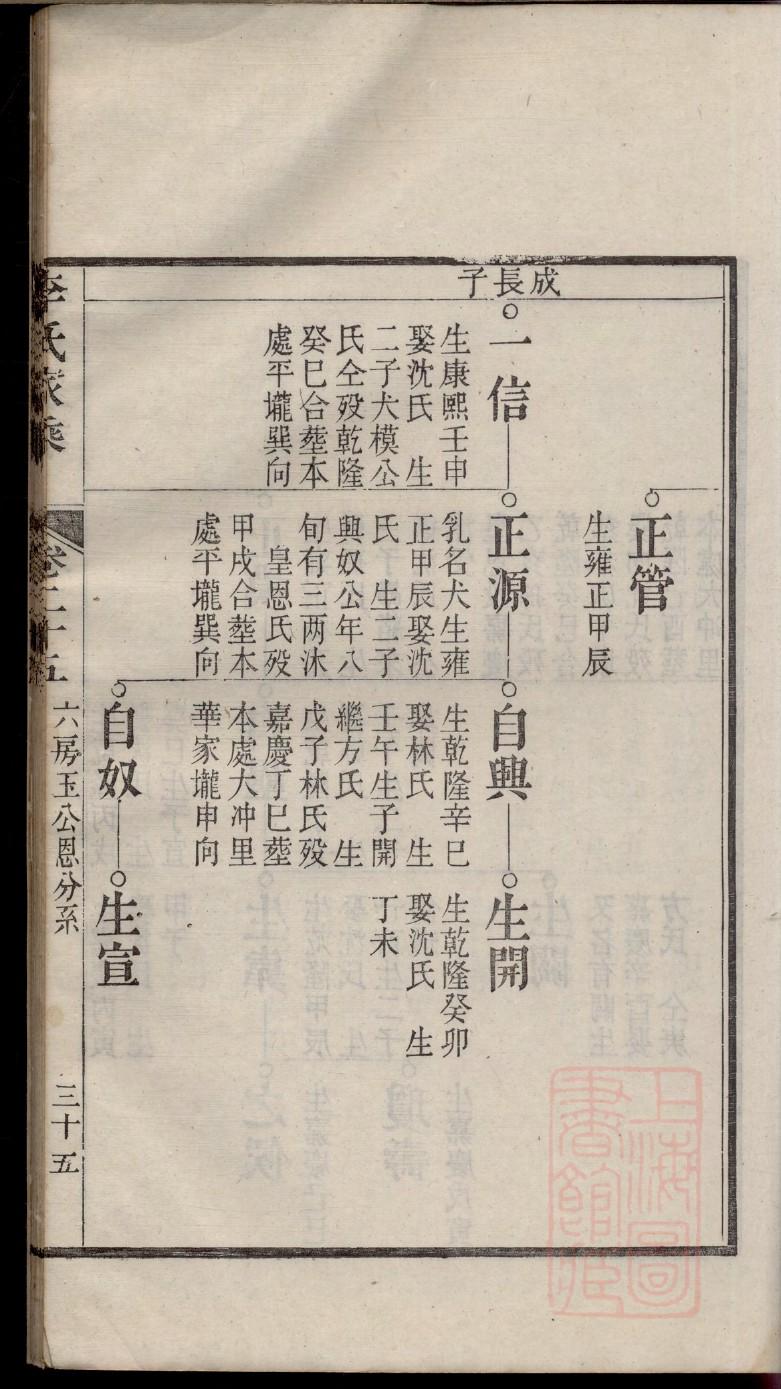 成長子
一信
生康熙壬申
娶沈氏　生
二子犬模公
氏仝歿乾隆
癸巳合塟本
處平壠巽向
正管
生雍正甲辰
正源
乳名犬生雍
正甲辰娶沈
氏　生二子
興奴公年八
旬有三两沐
皇恩氏歿
甲戌合塟本
處平壠巽向
自興
生乾隆辛巳
娶林氏　生
壬午生子開
繼方氏　生
戊子林氏歿
嘉慶丁巳塟
本處大冲里
華家壠申向
自奴
生開
生乾隆癸卯
娶沈氏　生
丁未
生宣
李氏家乘
卷二十五
六房玉公恩分系
三十五
上海圖書館藏